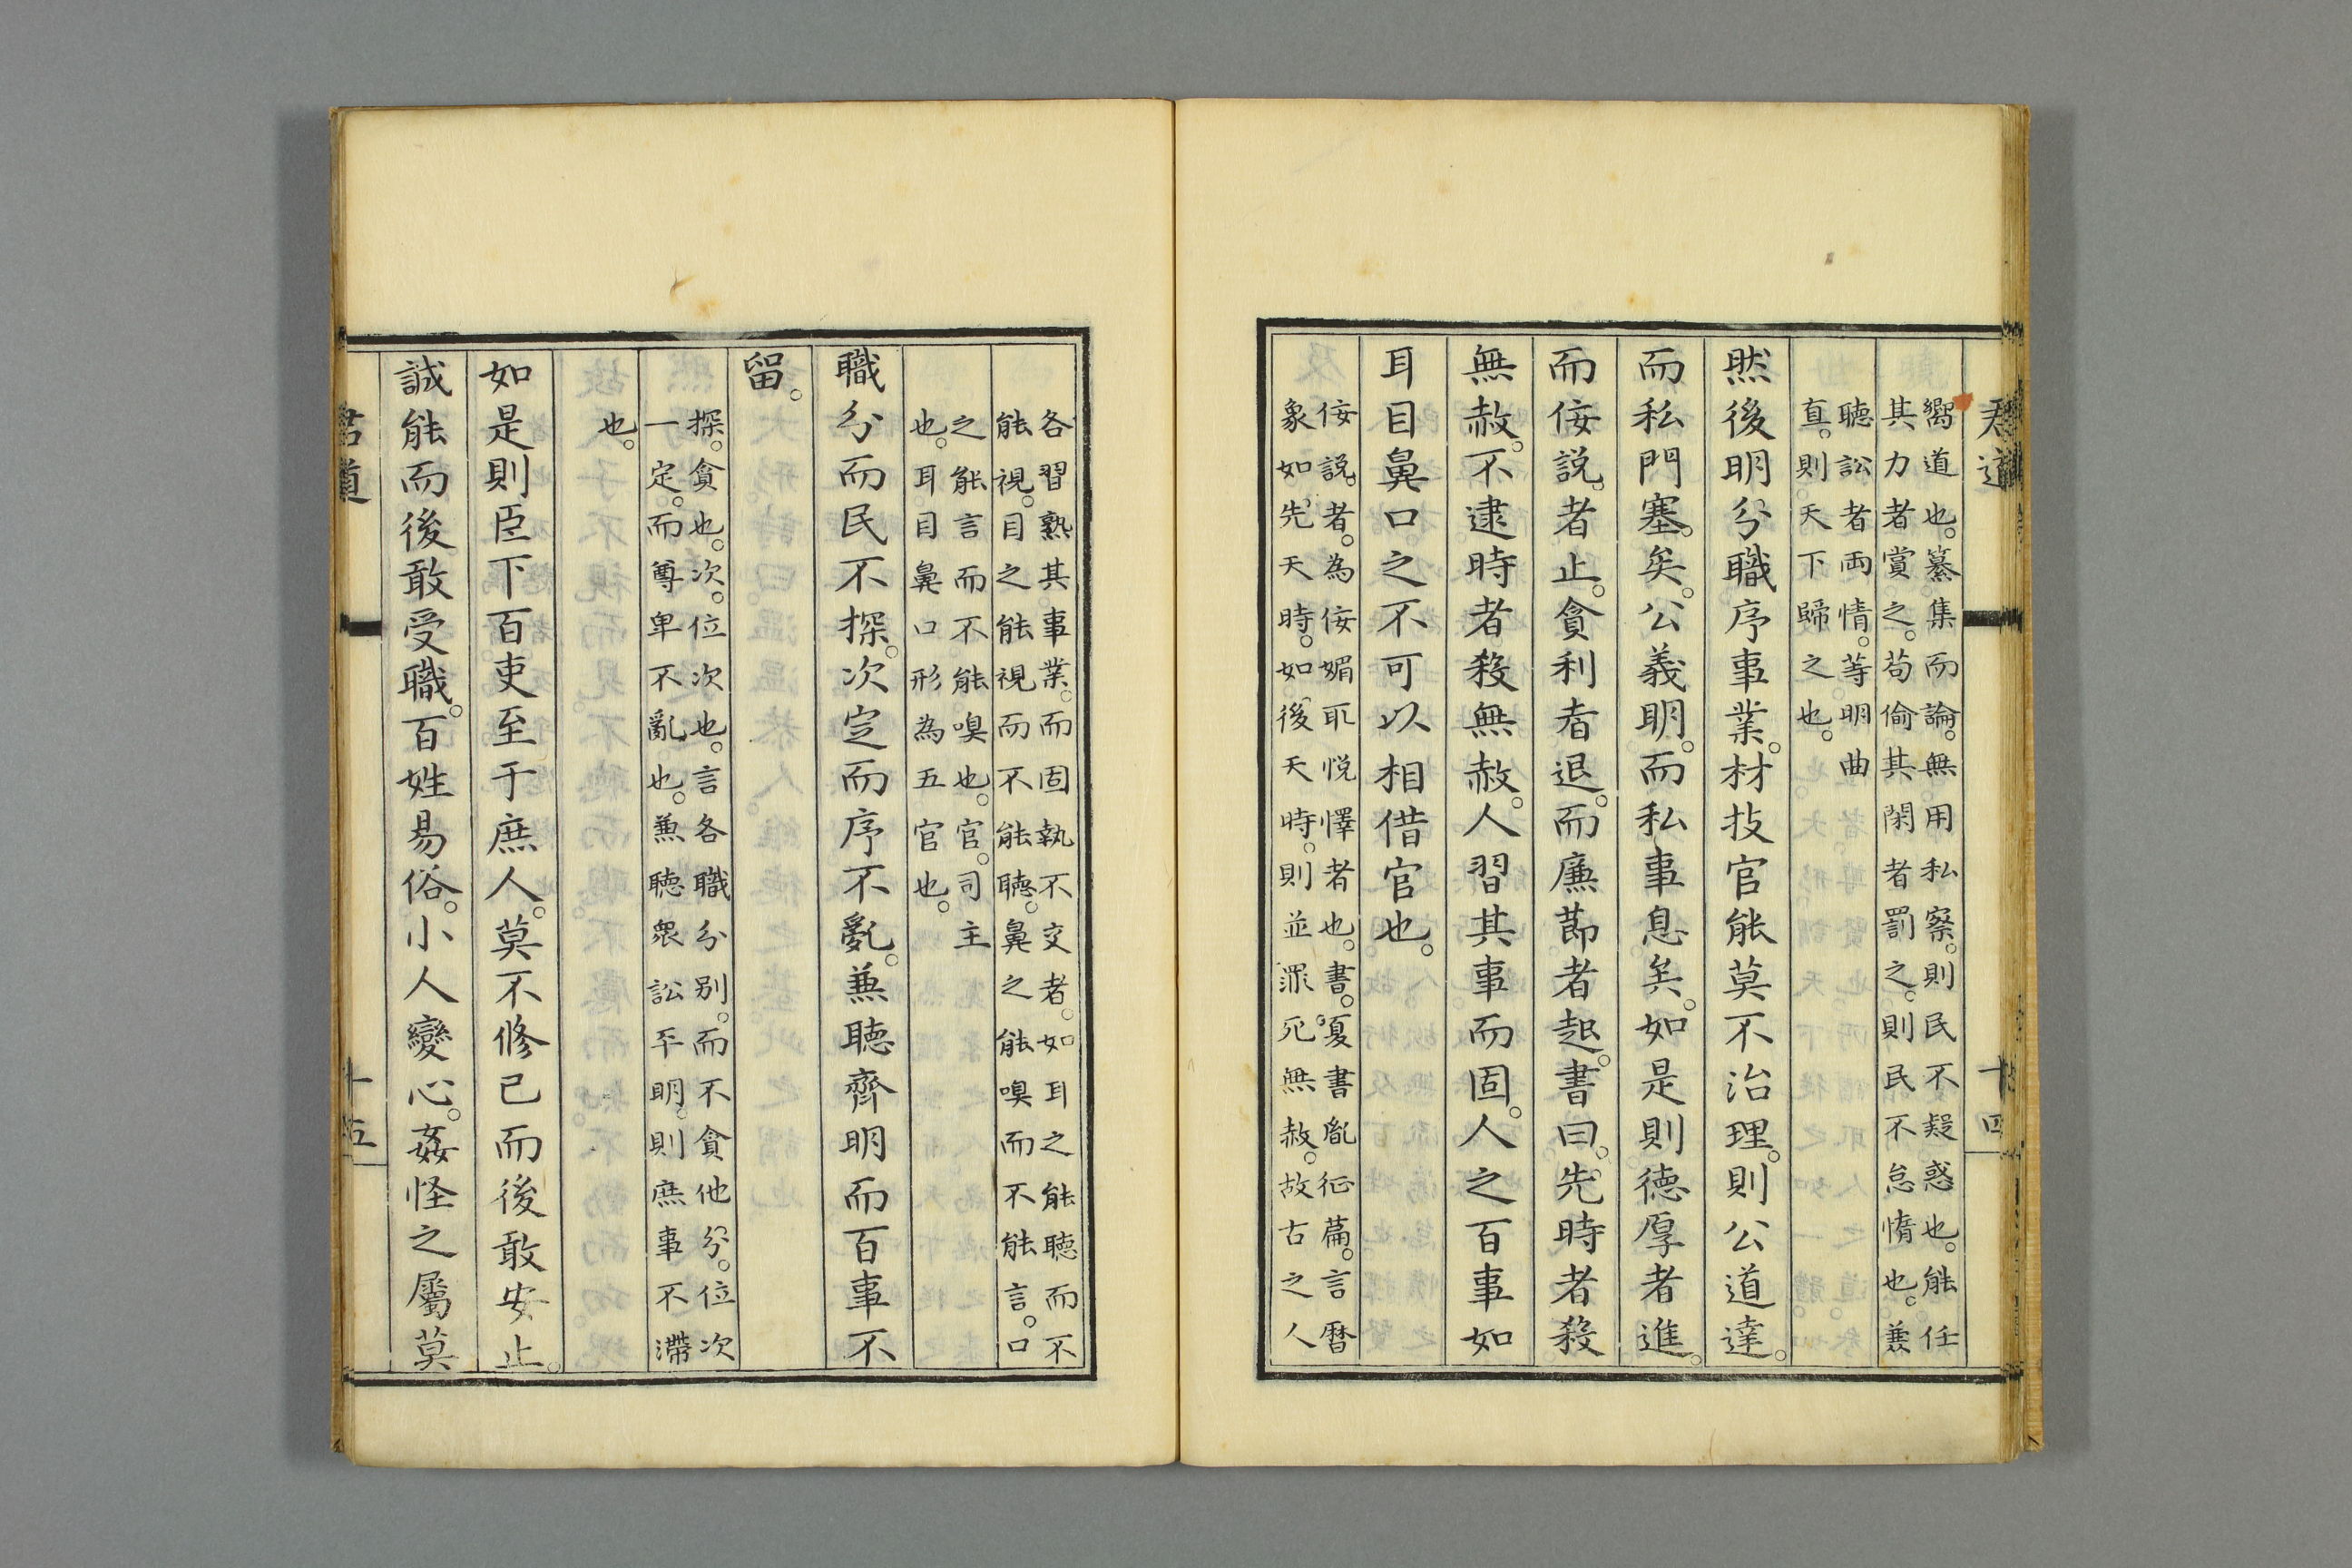 君道
十四
嚮道也。纂集而論。無用私察。則民不疑惑也。能任
其力者賞之。苟偷其閑者罰之。則民不怠惰也。兼
聽訟者両情。等明曲
直。則天下歸之也。
然後明分職序事業。材技官能莫不治理。則公道達。
而私門塞矣。公義明。而私事息矣。如是則德厚者進。
而佞說者止。貪利者退。而廉節者起。書曰。先時者殺
無赦。不逮時者殺無赦。人習其事而固。人之百事如
耳目鼻口之不可以相借官也。
佞說者。為佞媚取悅懌者也。書。夏書胤征篇。言曆
象如先天時。如後天時。則並罪死無赦。故古之人
各習熟其事業。而固執不交者。如耳之能聽而不
能視。目之能視而不能聽。鼻之能嗅而不能言。口
之能言而不能嗅也。官。司主
也。耳目鼻口形為五官也。
職分而民不探。次定而序不亂。兼聽齊明而百事不
留。
探。貪也。次。位次也。言各職分別。而不貪他分。位次
一定。而尊卑不亂也。兼聽眾訟平明。則庶事不滯
也。
如是則臣下百吏至于庶人。莫不修己而後敢安止。
誠能而後敢受職。百姓易俗。小人變心。姦怪之屬莫
君道
十五